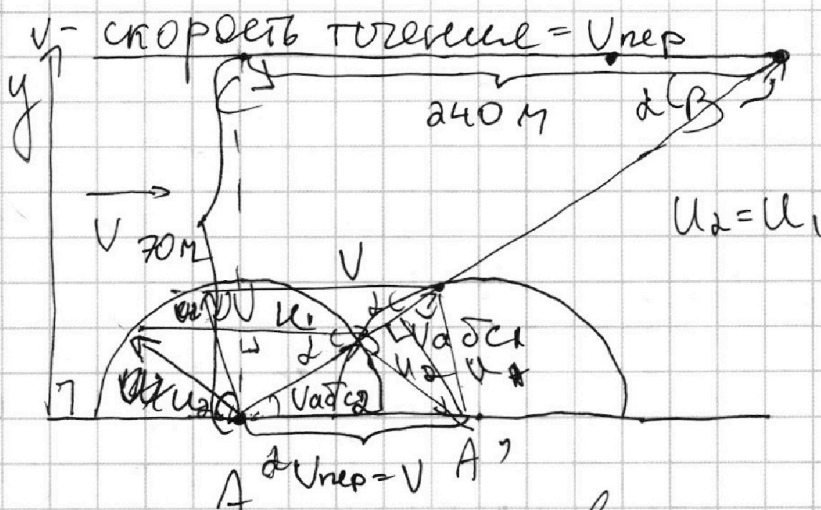 V - скорость течения = Vпер
y
240 м
α
V
70 м
U₂ = U₁
V
α
U₁
α
Vабс1
U₂
Vабс2
α
Vпер = V
A
A'